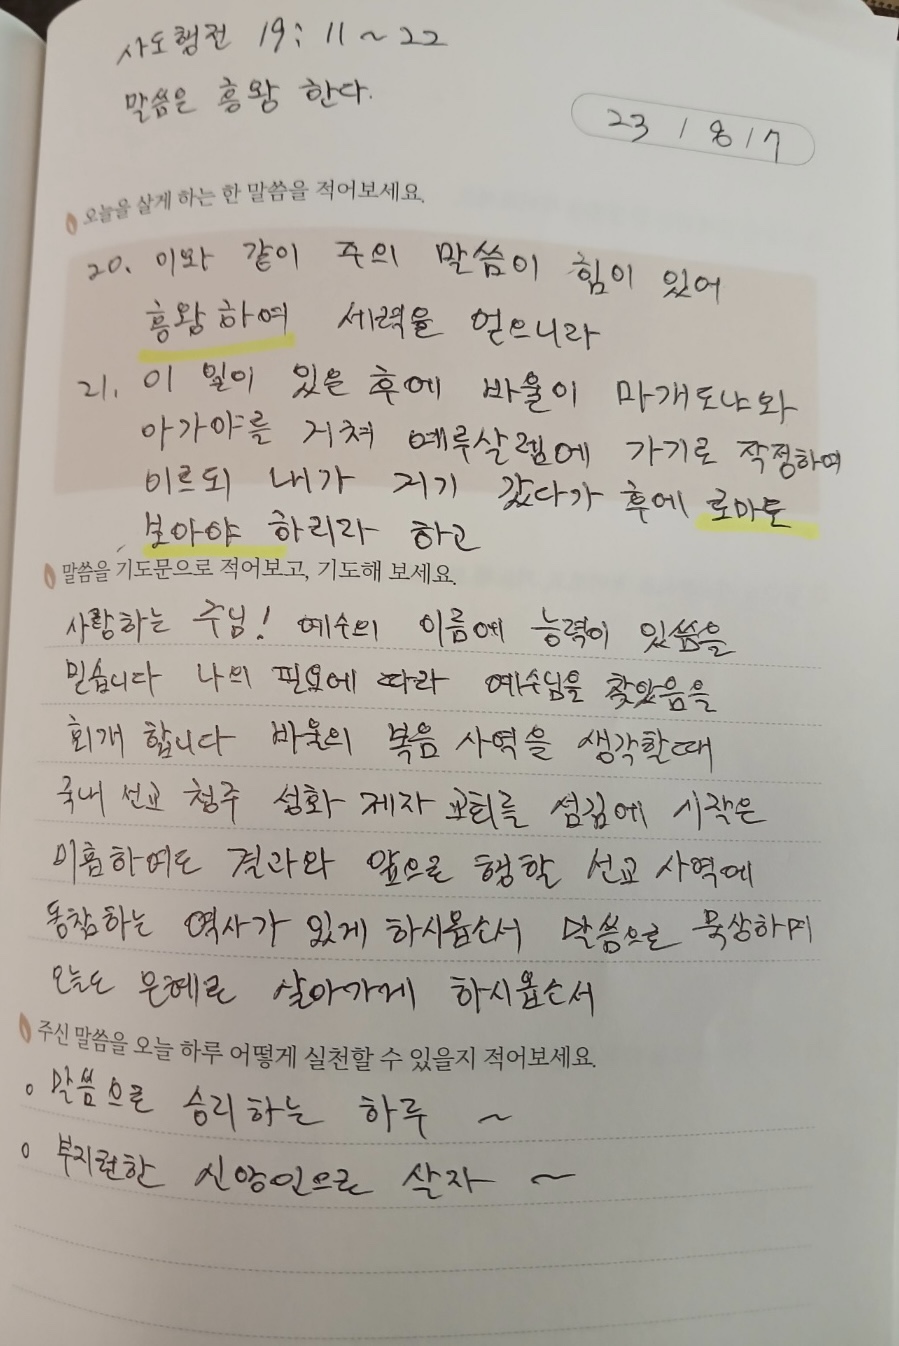 사도행전 19: 11~22
말씀은 흥왕 한다.
23 / 8 / 7
오늘을 살게 하는 한 말씀을 적어보세요.
20. 이와 같이 주의 말씀이 힘이 있어
흥왕하여 세력을 얻으니라
21. 이 일이 있은 후에 바울이 마게도냐와
아가야를 거쳐 예루살렘에 가기로 작정하여
이르되 내가 거기 갔다가 후에 로마도
보아야 하리라 하고
말씀을 기도문으로 적어보고, 기도해 보세요.
사랑하는 주님! 예수의 이름에 능력이 있씀을
믿습니다 나의 필요에 따라 예수님을 찾았음을
회개 합니다 바울의 복음 사역을 생각할때
국내 선교 청주 성화 제자 교회를 섬김에 시작은
미흡하여도 결과와 앞으로 행할 선교 사역에
동참하는 역사가 있게 하시옵소서 말씀으로 묵상하며
오늘도 은혜로 살아가게 하시옵소서
주신 말씀을 오늘 하루 어떻게 실천할 수 있을지 적어보세요.
○ 말씀으로 승리하는 하루 ~
○ 부지런한 신앙인으로 살자 ~